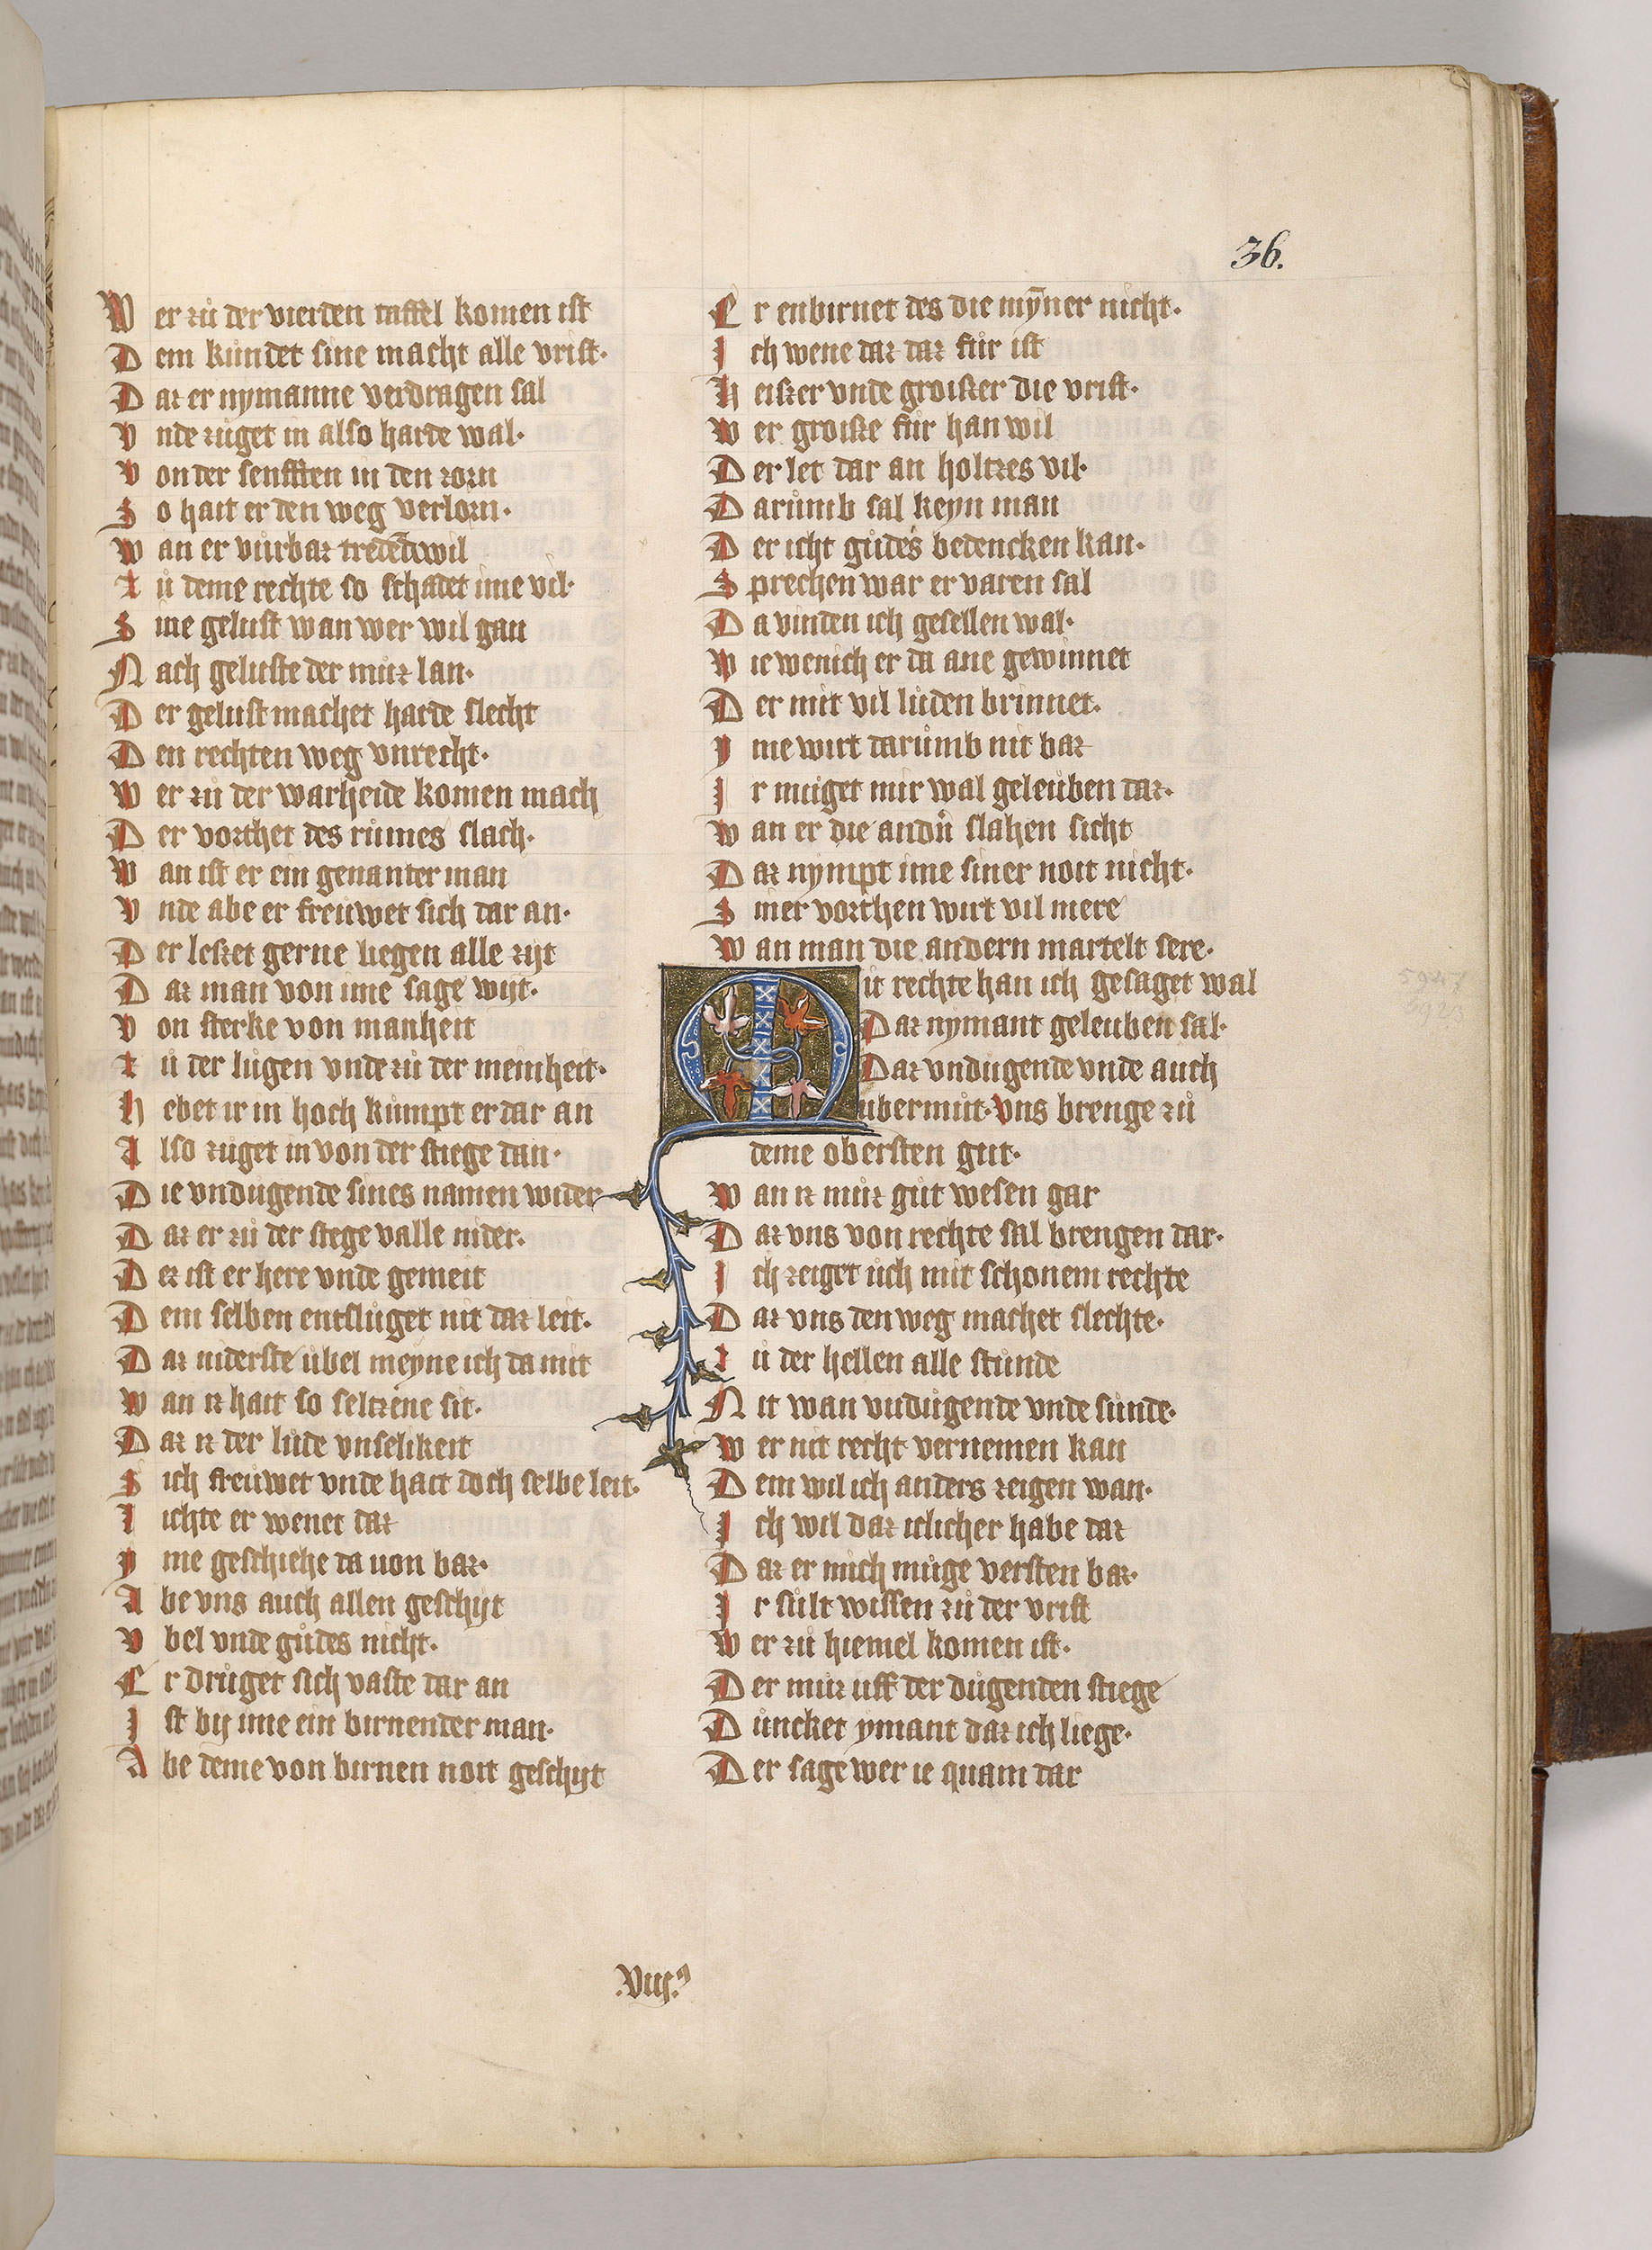 36.
Wer zů der vierden taffel komen ist
Dem kůndet sine macht alle vrist·
Daz er nymanne verdragen sal
Vnde zůget in also harte wal·
Von der senfften in den zorn
So hait er den weg verlorn·
Wan er vůrbaz treden wil
Zů deme rechte so schadet ime vil·
Sine gelust wan wer wil gan
Nach geluste der můz lan·
Der gelust machet harte slecht
Den rechten weg vnrecht·
Wer zů der warheide komen mach
Der vorchet des růmes slach·
Wan ist er ein genanter man
Vnde abe er freůwet sich dar an·
Der leszet gerne liegen alle zijt
Daz man von ime sage wijt·
Von sterke von manheit
Zů der lůgen vnde zů der meinheit·
Hebet ir in hoch kůmpt er dar an
Also zůget in von der stiege dan·
Die vndůgende sines namen wider
Daz er zů der stege valle nider·
Dez ist er here vnde gemeit
Dem selben entslůget nit daz leit·
Daz niderste ůbel meyne ich da mit
Wan iz hait so seltzene sit·
Daz iz der lůde vnselikeit
Sich freůwet vnde hait doch selbe leit·
Lichte er wenet daz
Yme geschiehe da von baz·
Abe vns auch allen geschijt
Vbel vnde gůdes nicht·
Er drůget sich vaste dar an
Ist by ime ein birnender man·
Abe deme von birnen noit geschijt
Er enbirnet des die mȳner nicht·
Ich wene daz daz fůr ist
Heiszer vnde groiszer die vrist·
Wer groisze fůr han wil
Der let dar an holtzes vil·
Darůmb sal keyn man
Der icht gůdes bedencken kan·
Sprechen war er varen sal
Da vinden ich gesellen wal·
Wie wenich er da ane gewinnet
Der mit vil lůden brinnet·
Yme wirt darůmb nit baz
Ir můget mir wal geleůben daz·
Wan er die andn̄ slahen sicht
Daz nympt ime siner noit nicht·
Siner vorchen wirt vil mere
Wan man die andern martelt sere·
Mit rechte han ich gesaget wal
Daz nymant geleuben sal·
Daz vndůgende vnde auch
ubermůt· Vns brenge zů
deme obersten gut·
Wan iz můz gůt wesen gar
Daz vns von rechte sal brengen dar·
Ich zeiget ůch mit schonem rechte
Daz vns den weg machet slechte·
Zů der hellen alle stůnde
Nit wan vndůgende vnde sůnde·
Wer nit recht vernemen kan
Dem wil ich anders zeigen wan·
Ich wil daz iclicher habe daz
Daz er mich můge versten baz·
Ir sůlt wissen zů der vrist
Wer zů hiemel komen ist·
Der můz uff der důgenden stiege
Důncket ymant daz ich liege·
Der sage wer ie quam dar